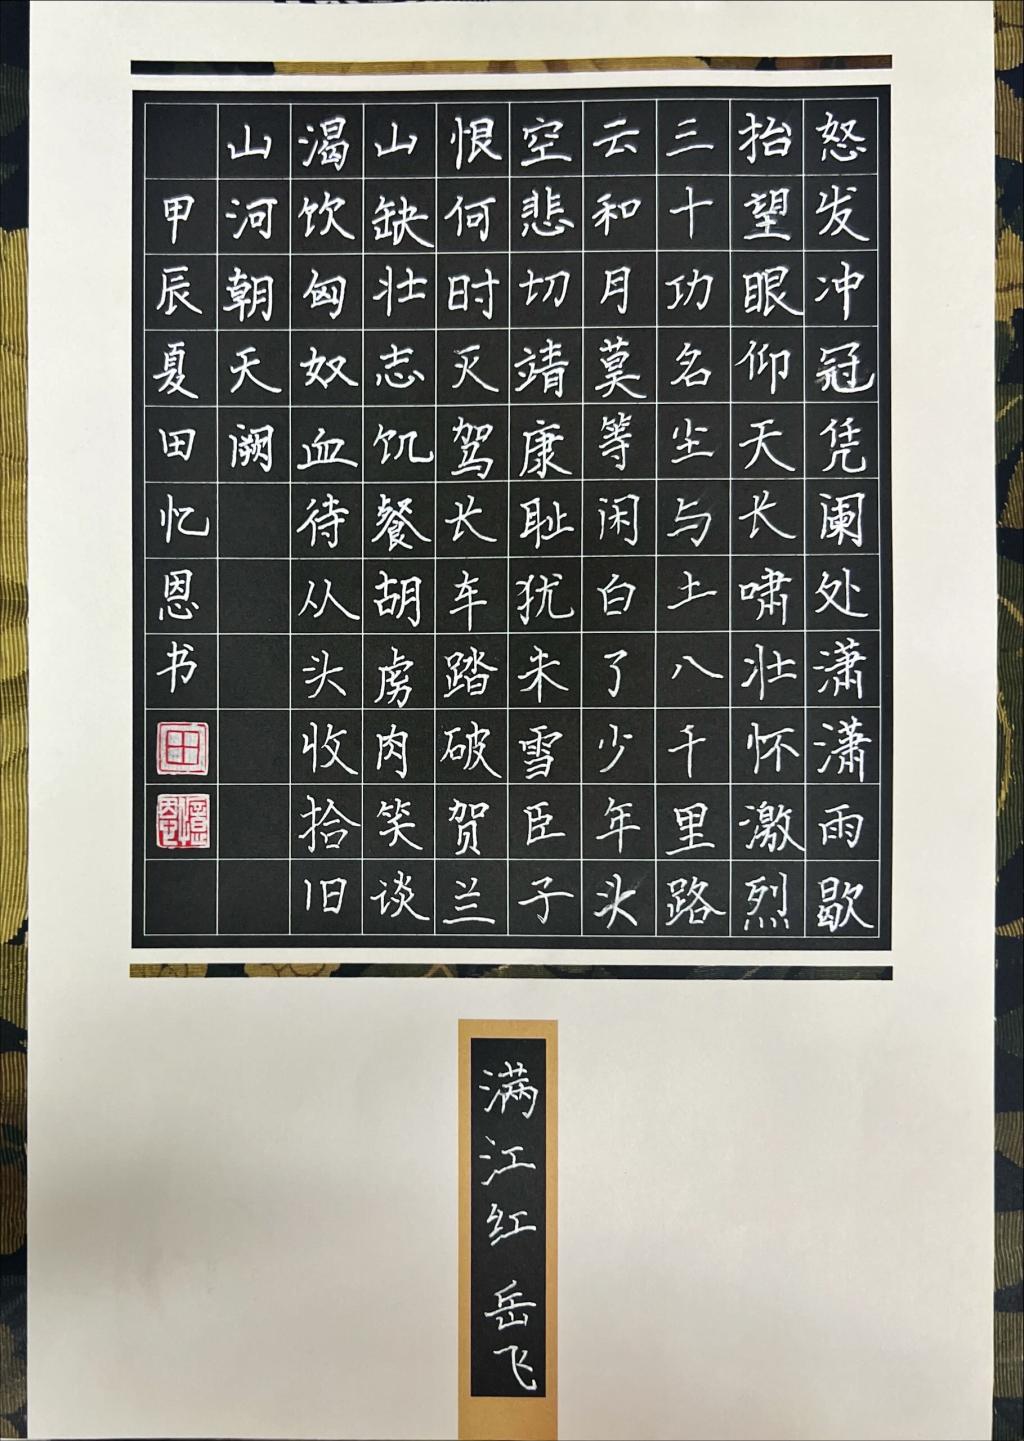 怒发冲冠凭阑处潇潇雨歇
抬望眼仰天长啸壮怀激烈
三十功名尘与土八千里路
云和月莫等闲白了少年头
空悲切靖康耻犹未雪臣子
恨何时灭驾长车踏破贺兰
山缺壮志饥餐胡虏肉笑谈
渴饮匈奴血待从头收拾旧
山河朝天阙
甲辰夏田忆恩书
田
憶恩
满江红 岳飞